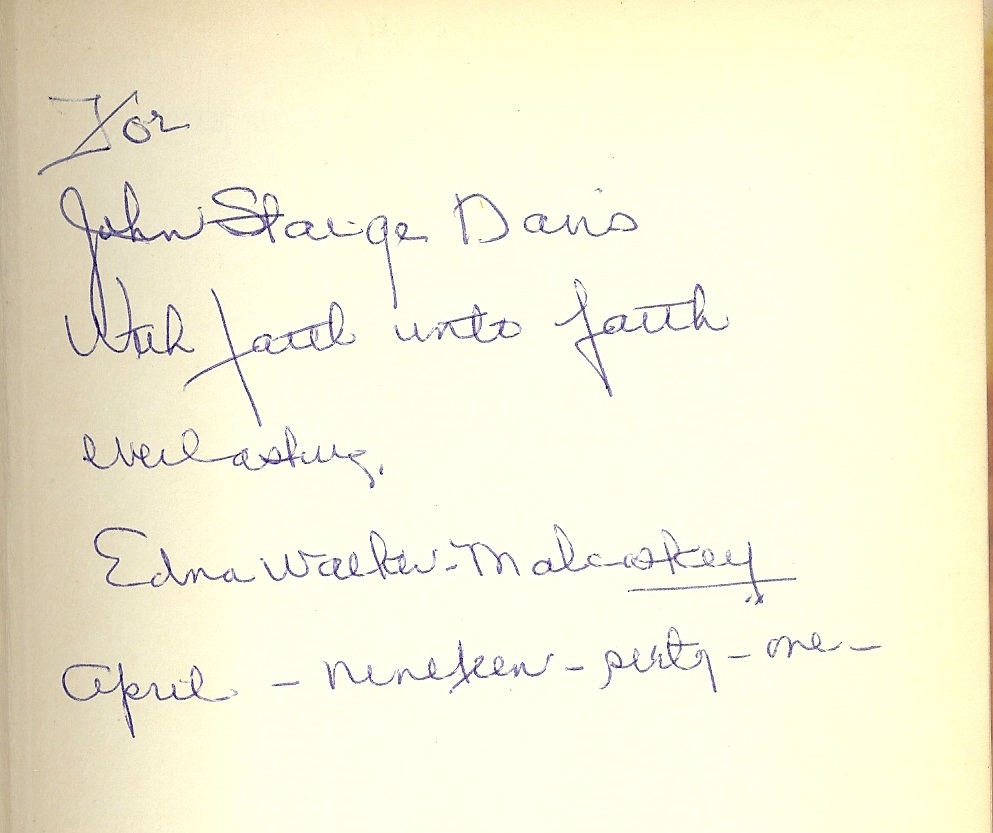 For
John Staige Davis
With faith unto faith
everlasting.
Edna Walker-Malcoskey
April - nineteen - sixty - one -